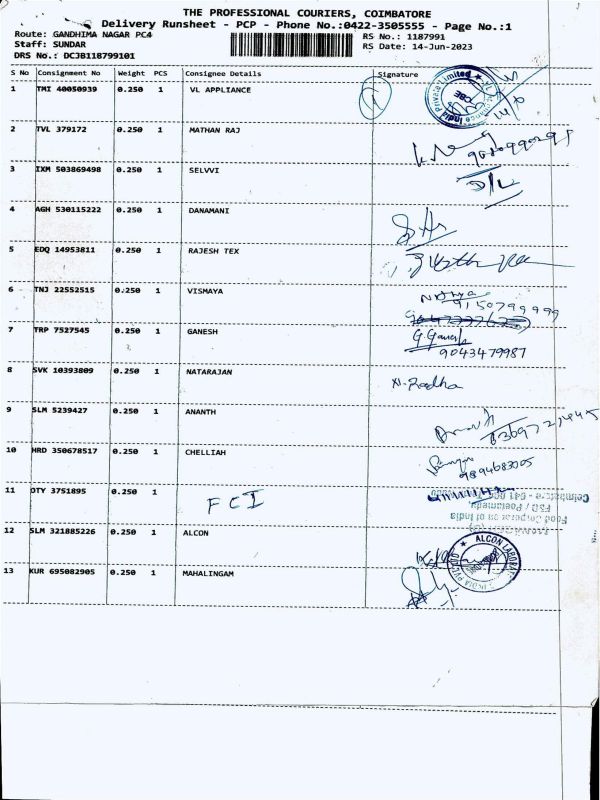 THE PROFESSIONAL COURIERS, COIMBATORE
Delivery Runsheet - PCP - Phone No.:0422-3505555 - Page No.:1
Route: GANDHIMA NAGAR PC4 RS No.: 1187991
Staff: SUNDAR RS Date: 14-Jun-2023
DRS No.: DCJB118799101
S No Consignment No Weight PCS Consignee Details Signature
1 TMI 40050939 0.250 1 VL APPLIANCE
2 TVL 379172 0.250 1 MATHAN RAJ
3 IXM 503869498 0.250 1 SELVVI
D/L
4 AGH 530115222 0.250 1 DANAMANI
5 EDQ 14953811 0.250 1 RAJESH TEX
6 TNJ 22552515 0.250 1 VISMAYA
9150799999
7 TRP 7527545 0.250 1 GANESH
9043479987
8 SVK 10393809 0.250 1 NATARAJAN N. Radha
9 SLM 5239427 0.250 1 ANANTH
10 HRD 350678517 0.250 1 CHELLIAH
9894683005
11 OTY 3751895 0.250 1 FCI
Food Corporation of India
12 SLM 321885226 0.250 1 ALCON
13 KUR 695082905 0.250 1 MAHALINGAM